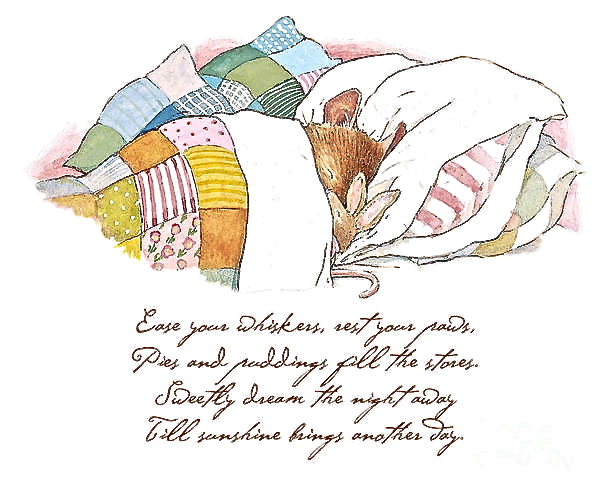 Ease your whiskers, rest your paws,
Pies and puddings fill the stores.
Sweetly dream the night away
Till sunshine brings another day.